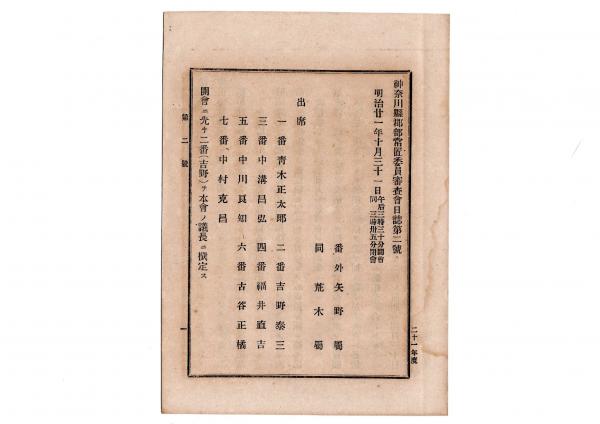 神奈川縣郡部常置委員審査會日誌第二號
明治廿一年十月三十一日午后三時三十分開會
同三時卅五分閉會
番外矢野屬
同荒木屬
出席
一番青木正太郎 二番吉野泰三
三番中溝昌弘 四番福井直吉
五番中川良知 六番古谷正橘
七番中村克昌
開會ニ先チ二番(吉野)ヲ本會ノ議長ニ撰定ス
二十一年度
第二號
一